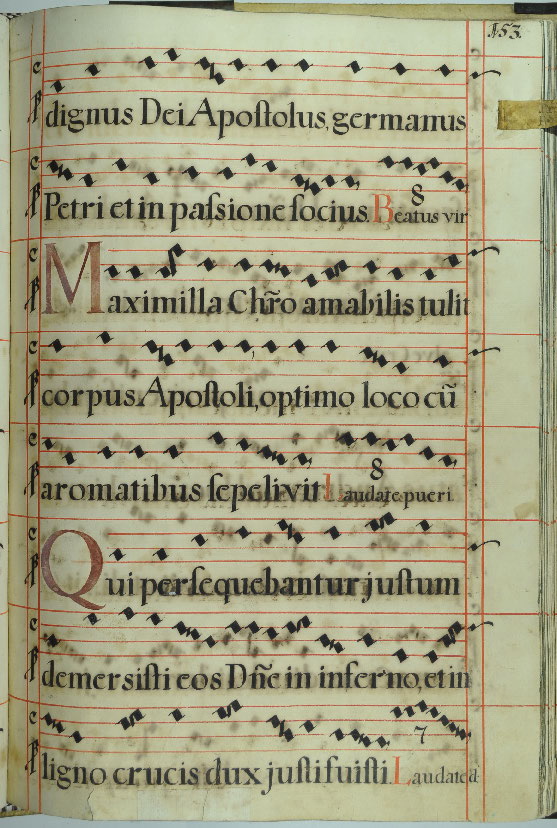 153.
dignus Dei Apoſtolus, germanus
Petri et in paſsione ſocius. Beatus vir
8
Maximilla Chr̃o amabilis tulit
corpus Apoſtoli, optimo loco cũ
aromatibus ſepelivit Laudate pueri
8
Qui perſequebantur juſtum
demersiſti eos Dñe in inferno, et in
ligno crucis dux juſti fuiſti. Laudate d
7